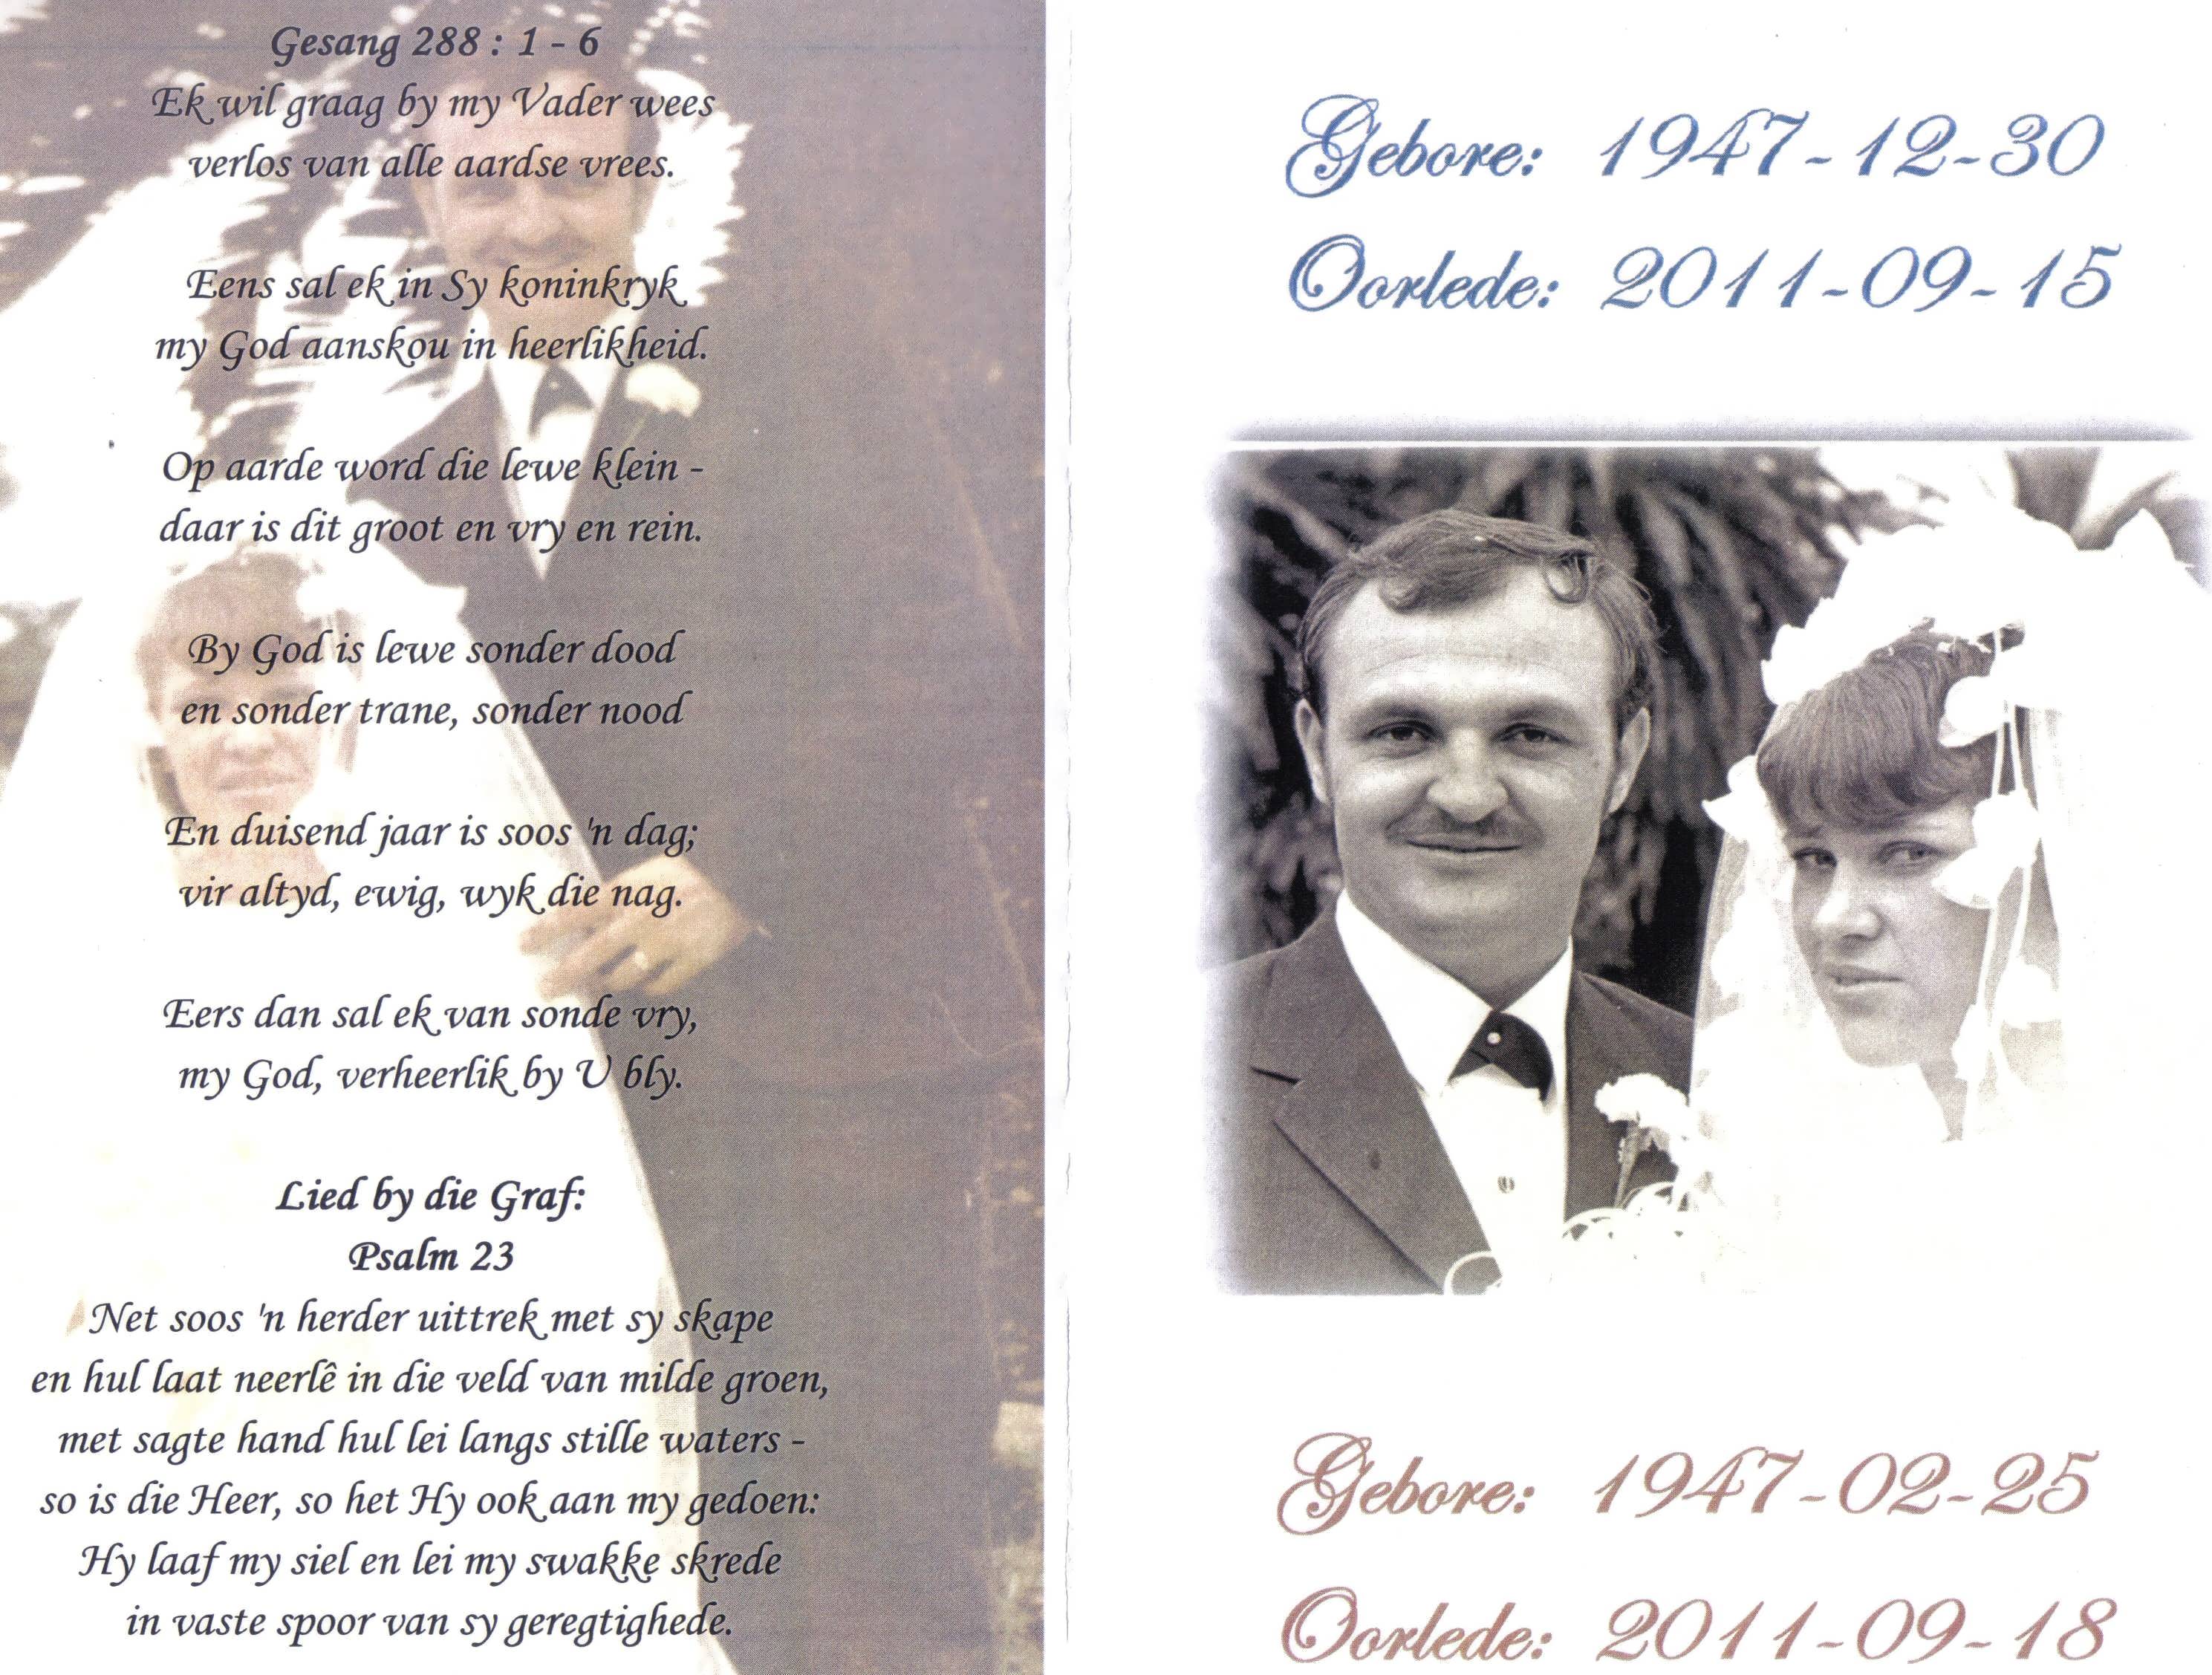 Gesang 288 : 1 - 6
Ek wil graag by my Vader wees
verlos van alle aardse vrees.
Eens sal ek in Sy koninkryk
my God aanskou in heerlikheid.
Op aarde word die lewe klein -
daar is dit groot en vry en rein.
By God is lewe sonder dood
en sonder trane, sonder nood
En duisend jaar is soos 'n dag;
vir altyd, ewig, wyk die nag.
Eers dan sal ek van sonde vry,
my God, verheerlik by U bly.
Lied by die Graf:
Psalm 23
Net soos 'n herder uittrek met sy skape
en hul laat neerlê in die veld van milde groen,
met sagte hand hul lei langs stille waters -
so is die Heer, so het Hy ook aan my gedoen:
Hy laaf my siel en lei my swakke skrede
in vaste spoor van sy geregtighede.
Gebore: 1947-12-30
Oorlede: 2011-09-15
Gebore: 1947-02-25
Oorlede: 2011-09-18